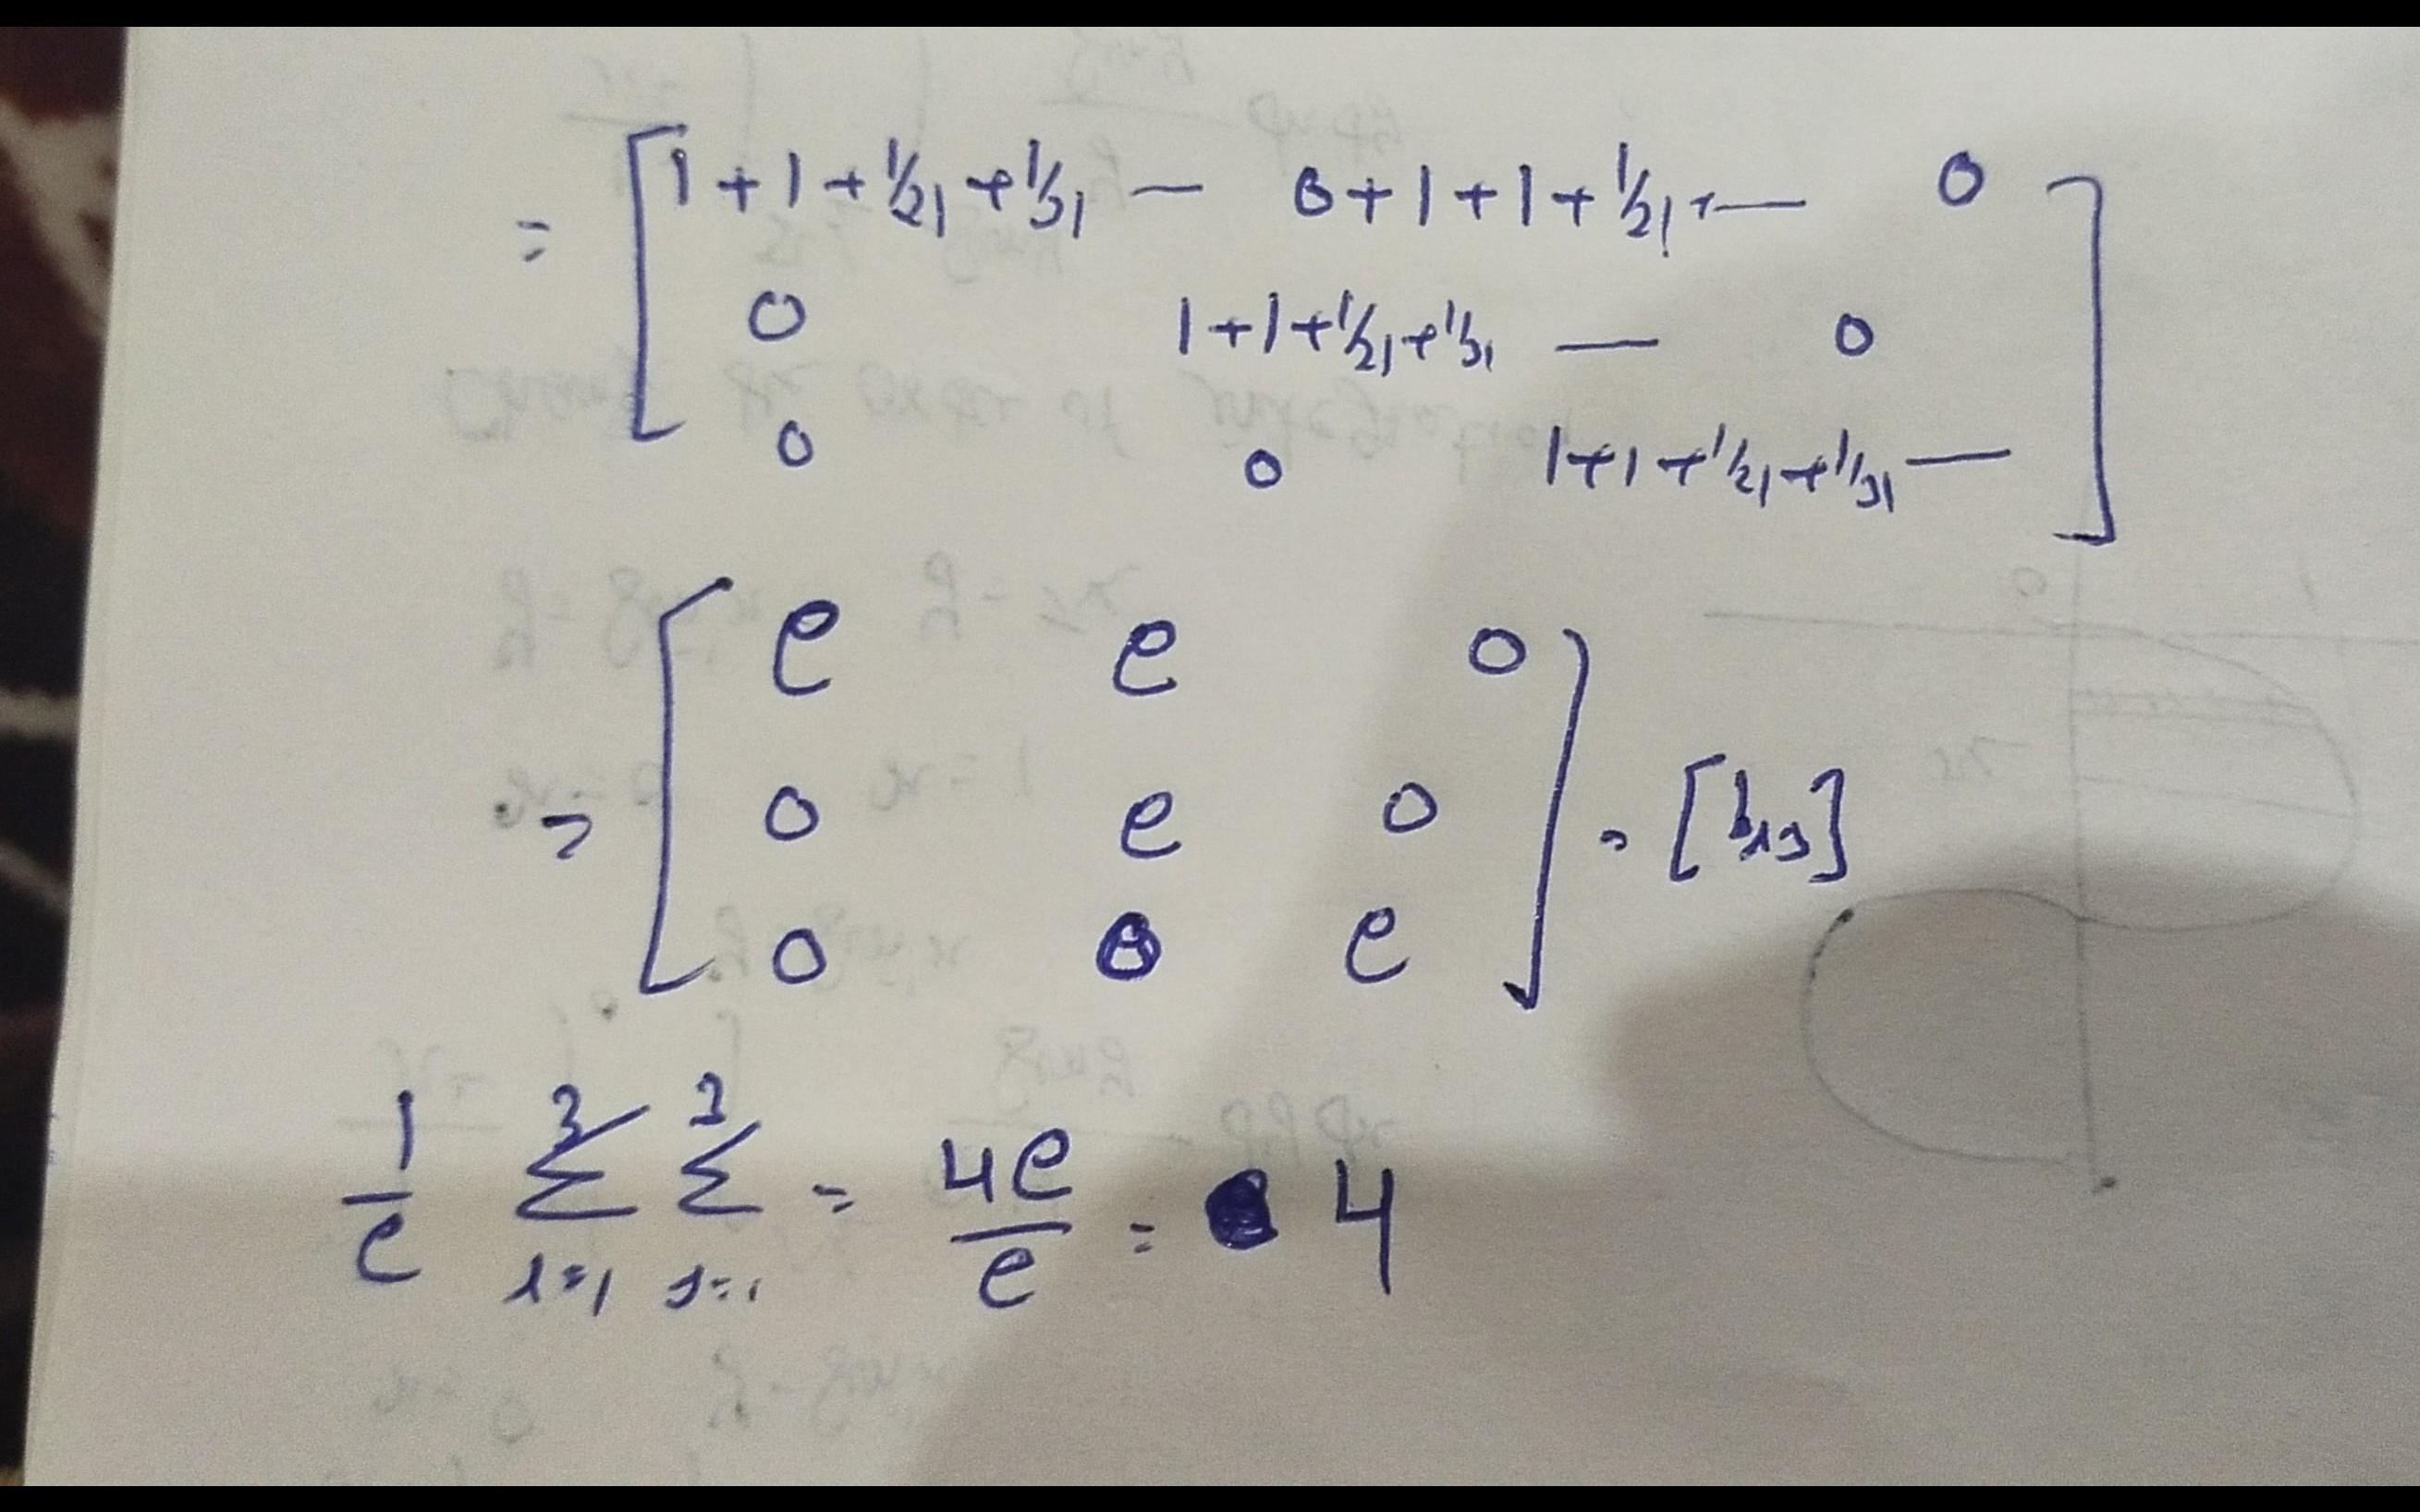 = [ 1 + 1 + 1/2! + 1/3! — 0 + 1 + 1 + 1/2! + — 0 ]
0 1 + 1 + 1/2! + 1/3! — 0
0 0 1 + 1 + 1/2! + 1/3! —
= [ e e 0 ]
0 e 0 = [bij]
0 0 e
1/e 3Σi=1 3Σj=1 = 4e/e = 4